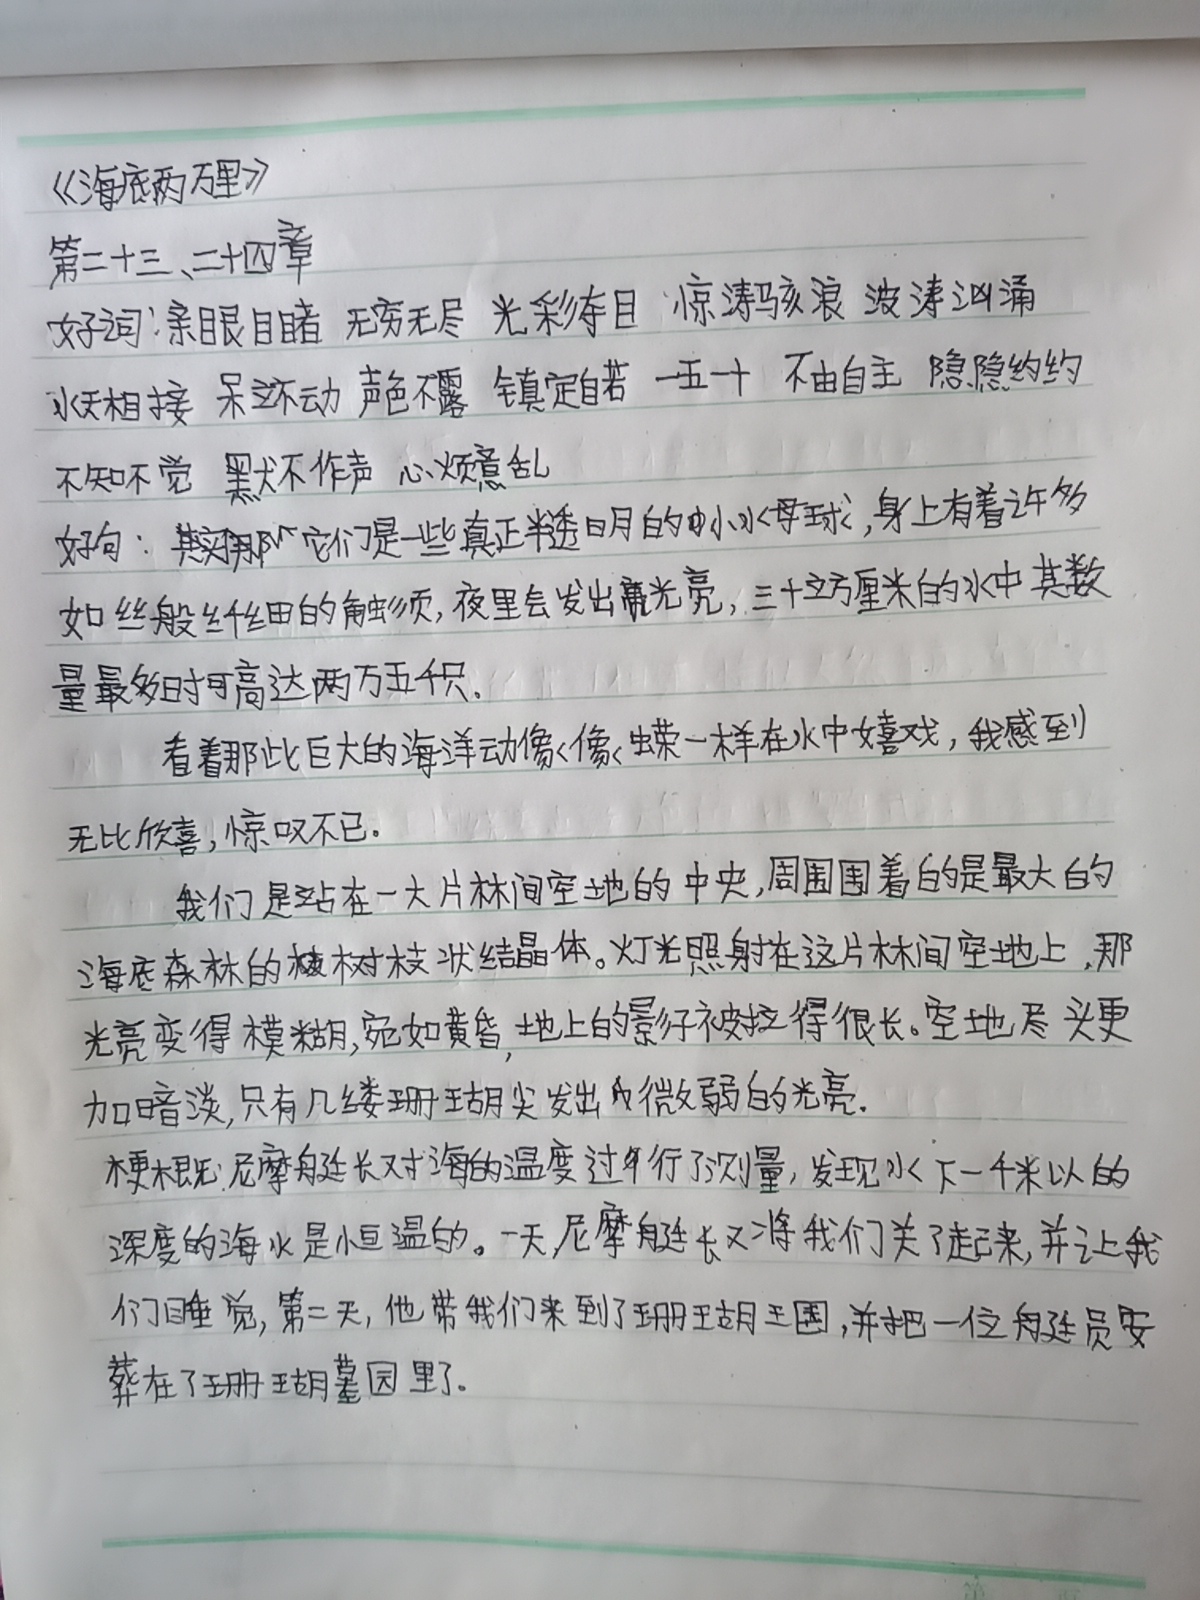 《海底两万里》
第二十三、二十四章
好词:亲眼目睹 无穷无尽 光彩夺目 惊涛骇浪 波涛汹涌
水天相接 呆立不动 声色不露 镇定自若 一五一十 不由自主 隐隐约约
不知不觉 默不作声 心烦意乱
好句:其实那它们是一些真正半透明的小水母球,身上有着许多
如丝般纤细的触须,夜里会发出亮光亮,三十立方厘米的水中其数
量最多时可高达两万五千只。
看着那些巨大的海洋动像像蝾一样在水中嬉戏,我感到
无比欣喜,惊叹不已。
我们是站在一大片林间空地的中央,周围围着的是最大的
海底森林的树枝状结晶体。灯光照射在这片林间空地上,那
光亮变得模糊,宛如黄昏,地上的影子被拉得很长。空地尽头更
加暗淡,只有几缕珊瑚尖发出微弱的光亮。
梗概:尼摩艇长对海的温度过行了测量,发现水下一千米以的
深度的海水是恒温的。一天,尼摩艇长又将我们关了起来,并让我
们睡觉,第二天,他带我们来到了珊瑚王国,并把一位艇员安
葬在了珊瑚墓园里了。